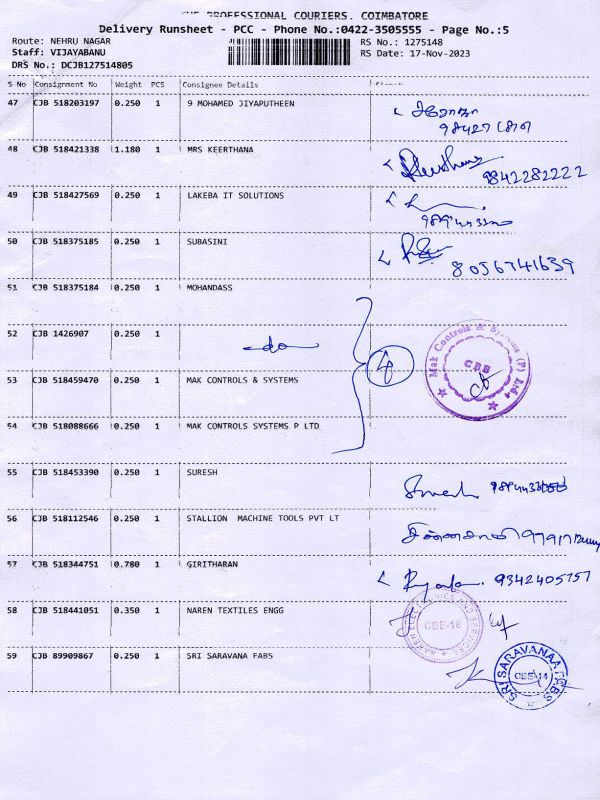 THE PROFESSIONAL COURIERS. COIMBATORE
Delivery Runsheet - PCC - Phone No.:0422-3505555 - Page No.:5
Route: NEHRU NAGAR RS No.: 1275148
Staff: VIJAYABANU RS Date: 17-Nov-2023
DRS No.: DCJB127514805
S No Consignment No Weight PCS Consignee Details
47 CJB 518203197 0.250 1 9 MOHAMED JIYAPUTHEEN
48 CJB 518421338 1.180 1 MRS KEERTHANA
9842282222
49 CJB 518427569 0.250 1 LAKEBA IT SOLUTIONS
50 CJB 518375185 0.250 1 SUBASINI
8056741639
51 CJB 518375184 0.250 1 MOHANDASS
52 CJB 1426907 0.250 1 -do- 4 Mak Controls & Systems (P) Ltd. CBE
53 CJB 518459470 0.250 1 MAK CONTROLS & SYSTEMS
54 CJB 518088666 0.250 1 MAK CONTROLS SYSTEMS P LTD
55 CJB 518453390 0.250 1 SURESH
56 CJB 518112546 0.250 1 STALLION MACHINE TOOLS PVT LT
57 CJB 518344751 0.780 1 GIRITHARAN 9342405757
58 CJB 518441051 0.350 1 NAREN TEXTILES ENGG CBE-18
59 CJB 89909867 0.250 1 SRI SARAVANA FABS SRI SARAVANAA FABS CBE-14